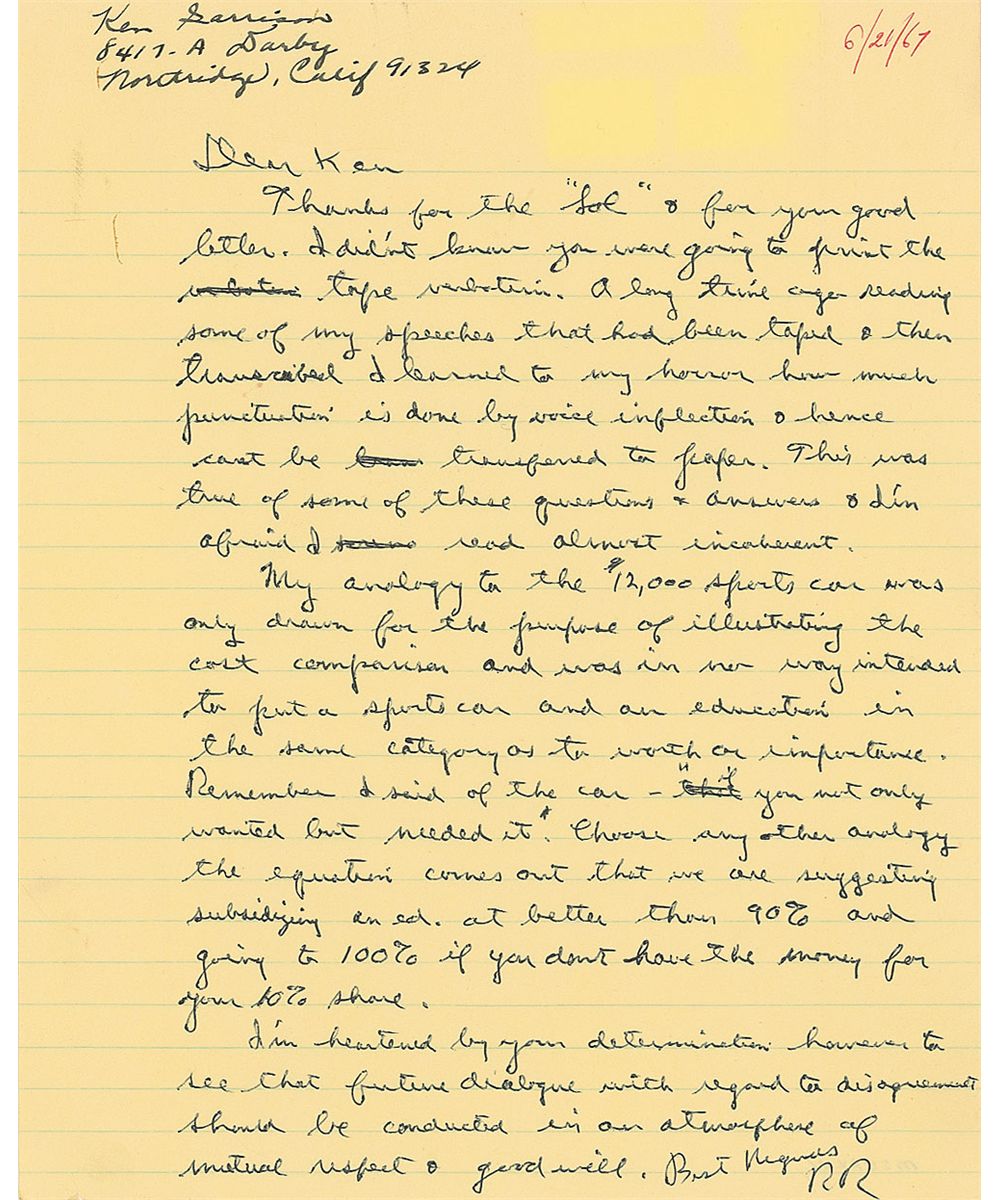 Ken Garrison
8417-A Darby
Northridge, Calif 91324
6/21/67
Dear Ken
Thanks for the "Sol" & for your good
letter. I did'nt know you were going to print the
tape verbatim. A long time ago reading
some of my speeches that had been taped & then
transcribed I learned to my horror how much
punctuation is done by voice inflection & hence
cant be transfered to paper. This was
true of some of these questions & answers & I'm
afraid I read almost incoherent.
My analogy to the $12,000 sports car was
only drawn for the purpose of illustrating the
cost comparison and was in no way intended
to put a sports car and an education in
the same category as to worth or importance.
Remember I said of the car – "if you not only
wanted but needed it". Choose any other analogy
the equation comes out that we are suggesting
subsidizing an ed. at better than 90% and
going to 100% if you dont have the money for
your 10% share.
I'm heartened by your determination however to
see that future dialogue with regard to disagreement
should be conducted in an atmosphere of
mutual respect & good will. Best Regards
RR